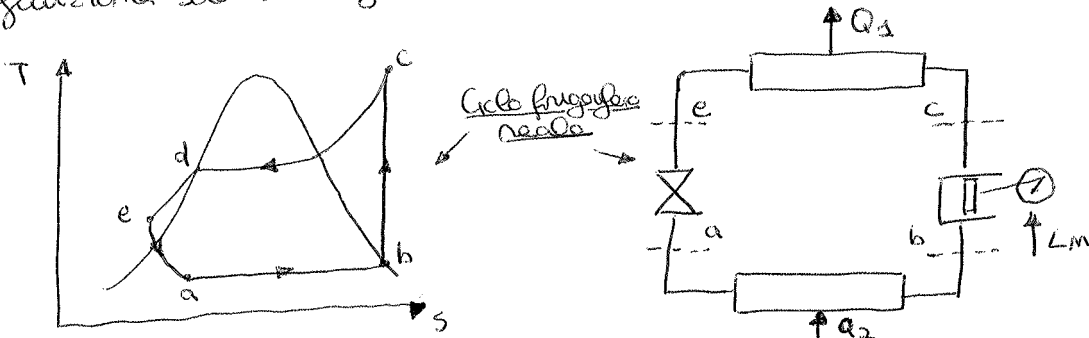 T
c
d
e
a
b
s
Ciclo frigorifero
reale
Q1
e
c
a
b
LM
Q2